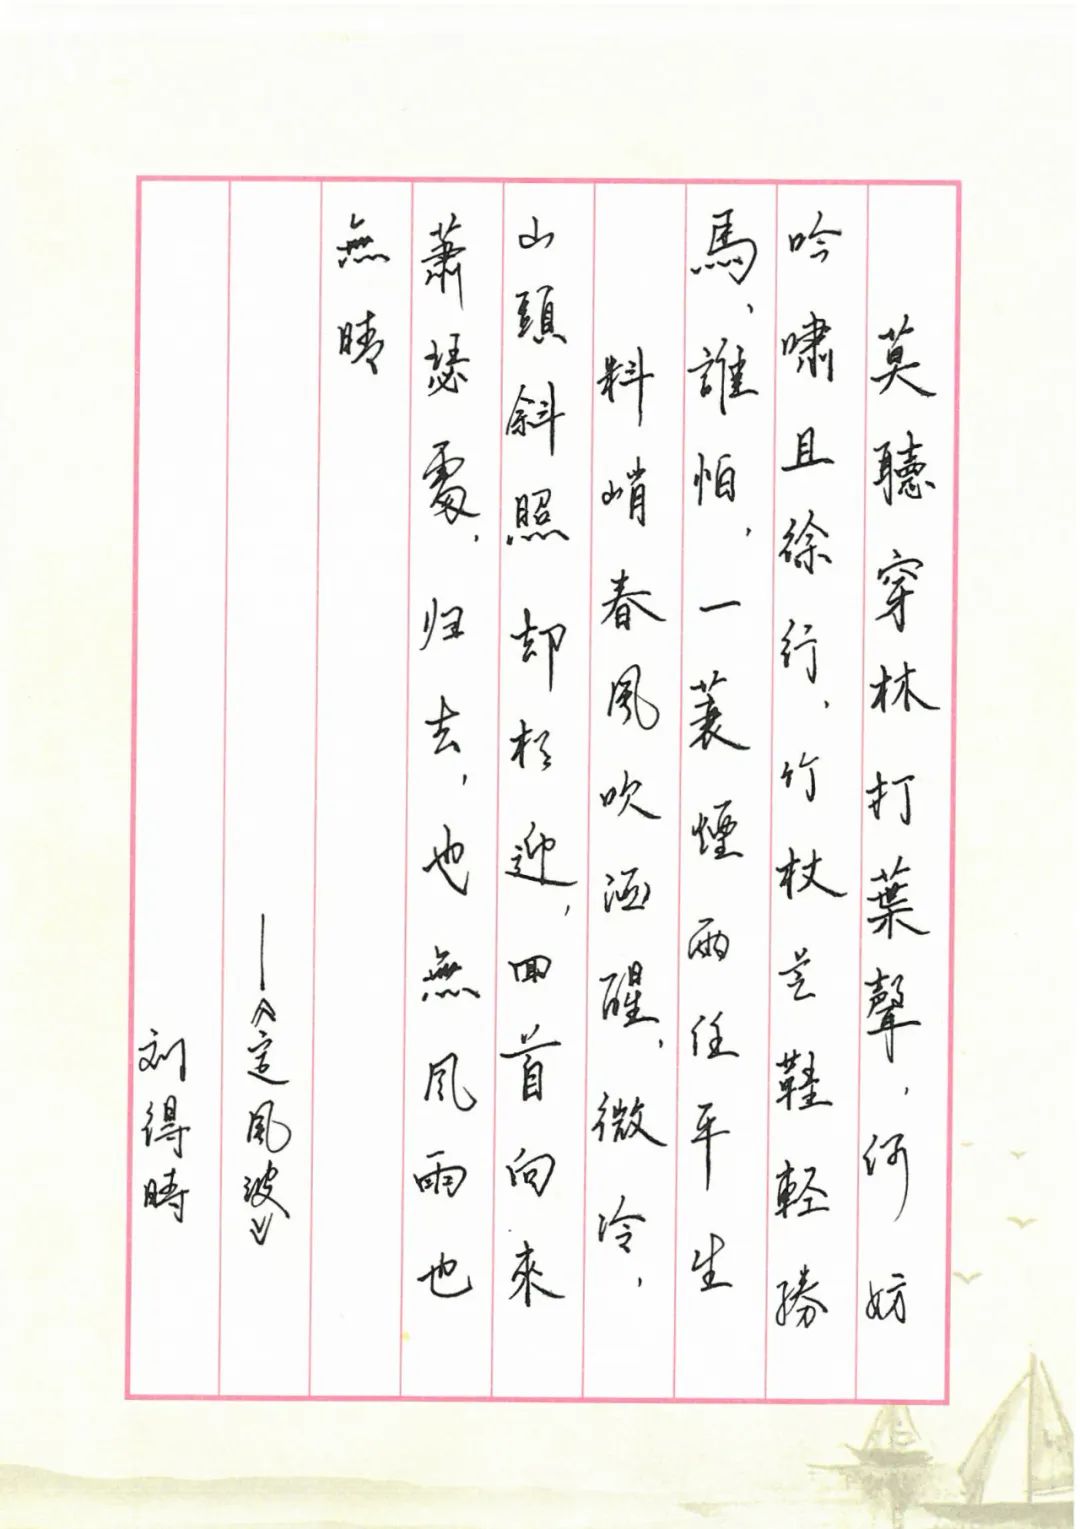 莫聽穿林打葉聲，何妨
吟嘯且徐行，竹杖芒鞋輕勝
馬，誰怕，一蓑煙雨任平生
料峭春風吹酒醒，微冷，
山頭斜照却相迎，回首向來
蕭瑟處，归去，也無風雨也
無晴
——《定風波》
刘得時